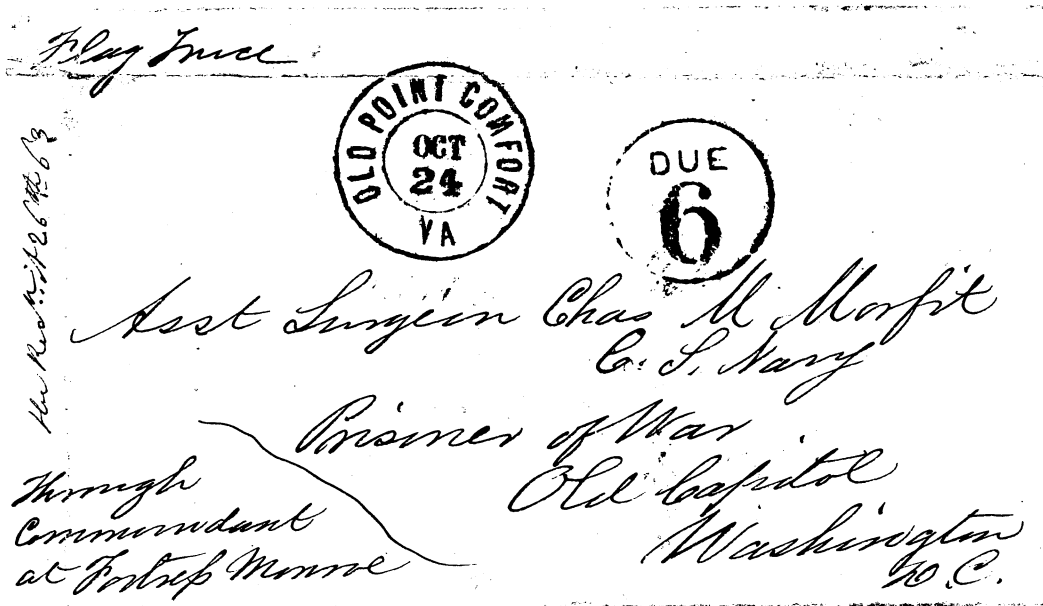 Flag Truce
OLD POINT COMFORT
OCT
24
VA
DUE
6
Recd 26th 63
Asst Surgeon Chas M Morfit
C. S. Navy
Prisoner of War
Old Capitol
Washington
D.C.
Through
Commandant
at Fortress Monroe